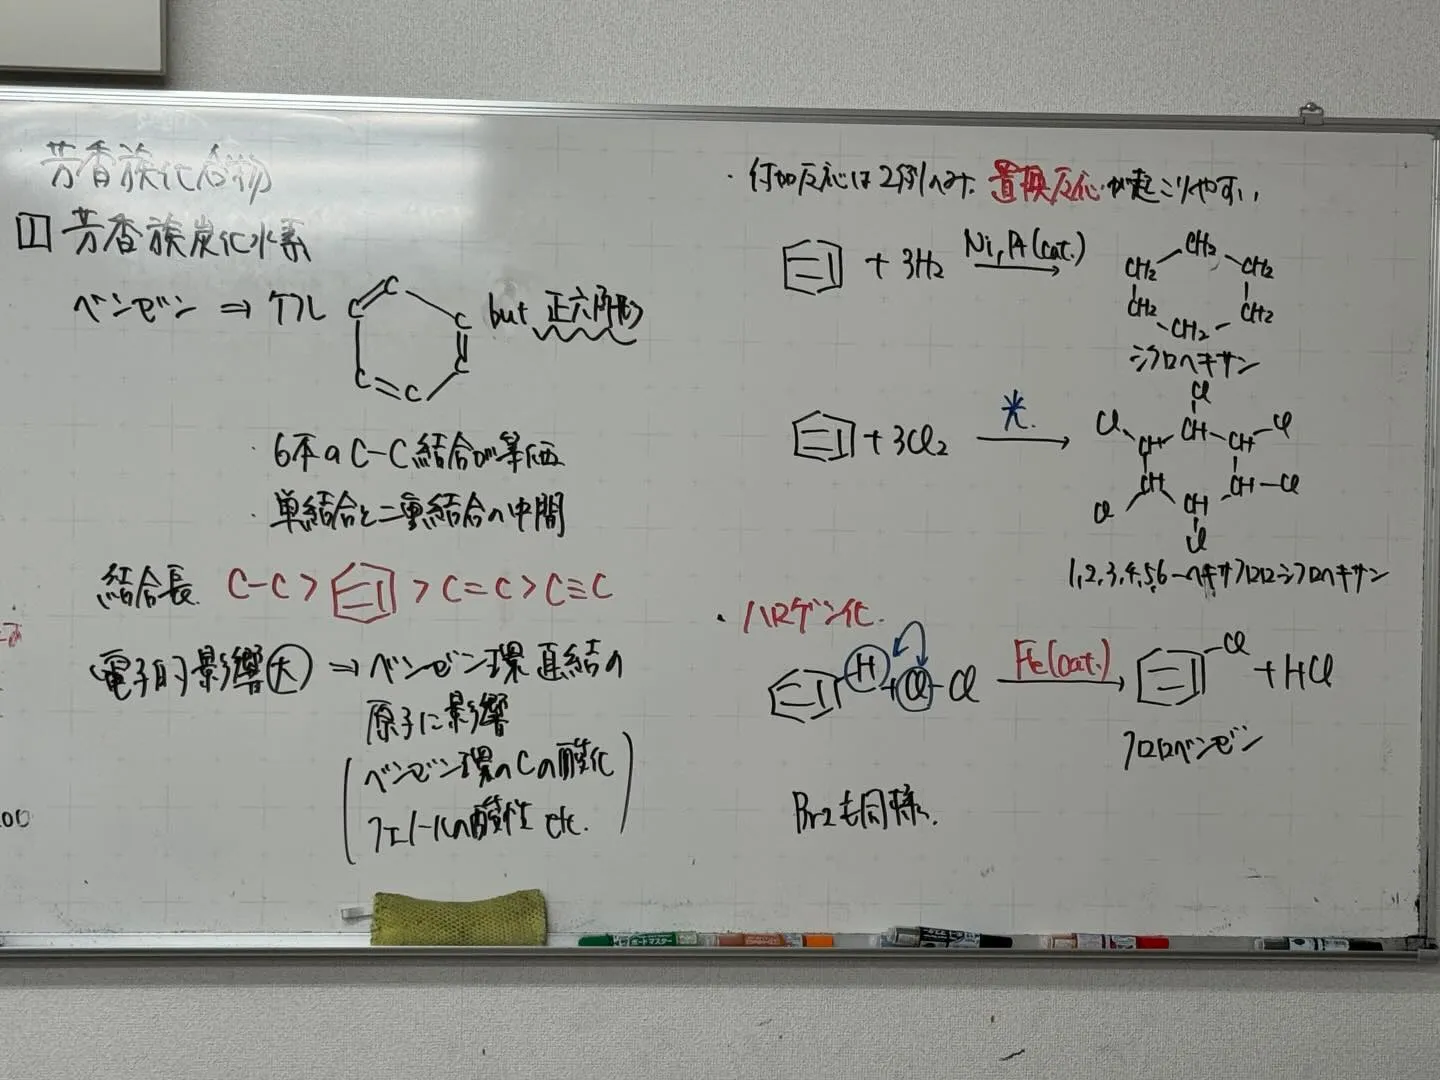 芳香族化合物
1 芳香族炭化水素
ベンゼン ⇒ ケクレ C C C C C but 正六角形
・6本のC-C結合が等価
・単結合と二重結合の中間
結合長 C-C > > C=C > C≡C
電子的影響大 ⇒ ベンゼン環直結の
原子に影響
(ベンゼン環のCの酸化
フェノールの酸性 etc.)
00
・付加反応は 置換反応が起こりやすい
+ 3H2 Ni, Pt (cat.) CH2 CH2 CH2 CH2 CH2 CH2
シクロヘキサン
+ 3Cl2 光 Cl Cl Cl CH CH CH CH CH CH Cl Cl Cl
1,2,3,4,5,6-ヘキサクロロシクロヘキサン
・ハロゲン化
H + Cl-Cl Fe(cat.) Cl + HCl
クロロベンゼン
Br2も同様.
ボードマスター